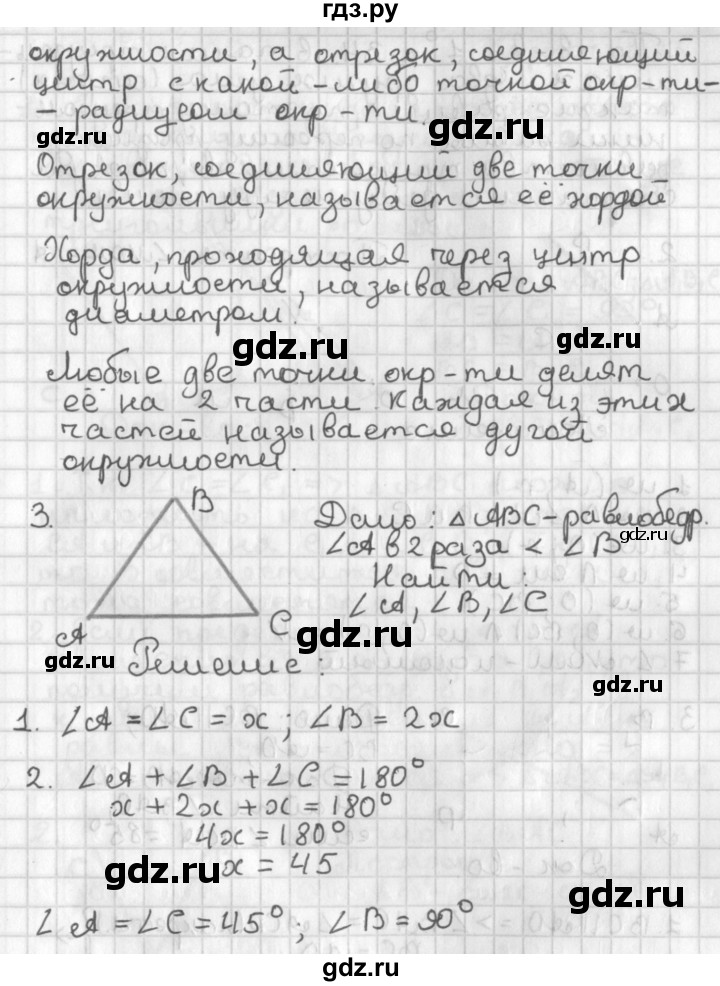 гдз.ру
окружности, а отрезок, соединяющий
центр с какой-либо точкой окр-ти-
- радиусом окр-ти.
gdz.ru
gdz.ru
Отрезок, соединяющий две точки
окружности, называется её хордой
Хорда, проходящая через центр
окружности, называется
диаметром.
gdz.ru
gdz.ru
Любые две точки окр-ти делят
её на 2 части. Каждая из этих
частей называется дугой
окружности.
3.
B
Дано: △ABC-равнобедр.
gdz.ru
∠A в 2 раза < ∠B
Найти:
∠A, ∠B, ∠C
A
C
gdz.ru
gdz.ru
Решение:
gdz.ru
1. ∠A = ∠C = x; ∠B = 2x
2. ∠A + ∠B + ∠C = 180°
x + 2x + x = 180°
4x = 180°
gdz.ru
x = 45
gdz.ru
∠A = ∠C = 45°; ∠B = 90°
gdz.ru
gdz.ru
gdz.ru